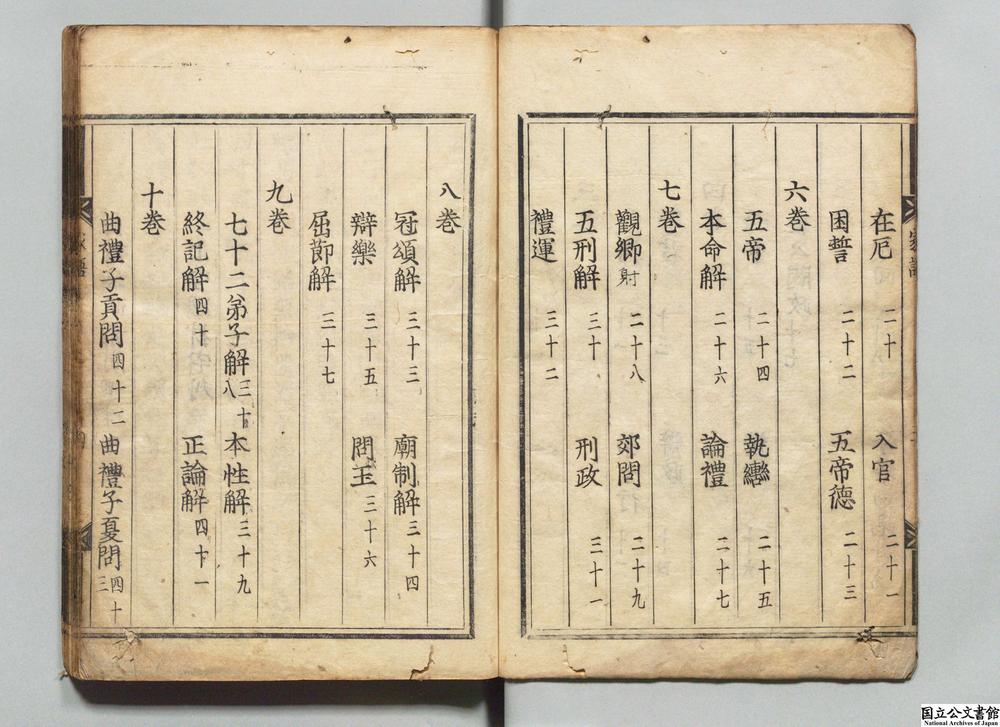 在厄 二十 入官 二十一
困誓 二十二 五帝德 二十三
六巻
五帝 二十四 執轡 二十五
本命解 二十六 論禮 二十七
七巻
觀鄉射 二十八 郊問 二十九
五刑解 三十 刑政 三十一
禮運 三十二
八巻
冠頌解 三十三 廟制解 三十四
辯樂 三十五 問玉 三十六
屈節解 三十七
九巻
七十二弟子解 三十八 本性解 三十九
終記解 四十 正論解 四十一
十巻
曲禮子貢問 四十二 曲禮子夏問 四十三
家語
国立公文書館
National Archives of Japan